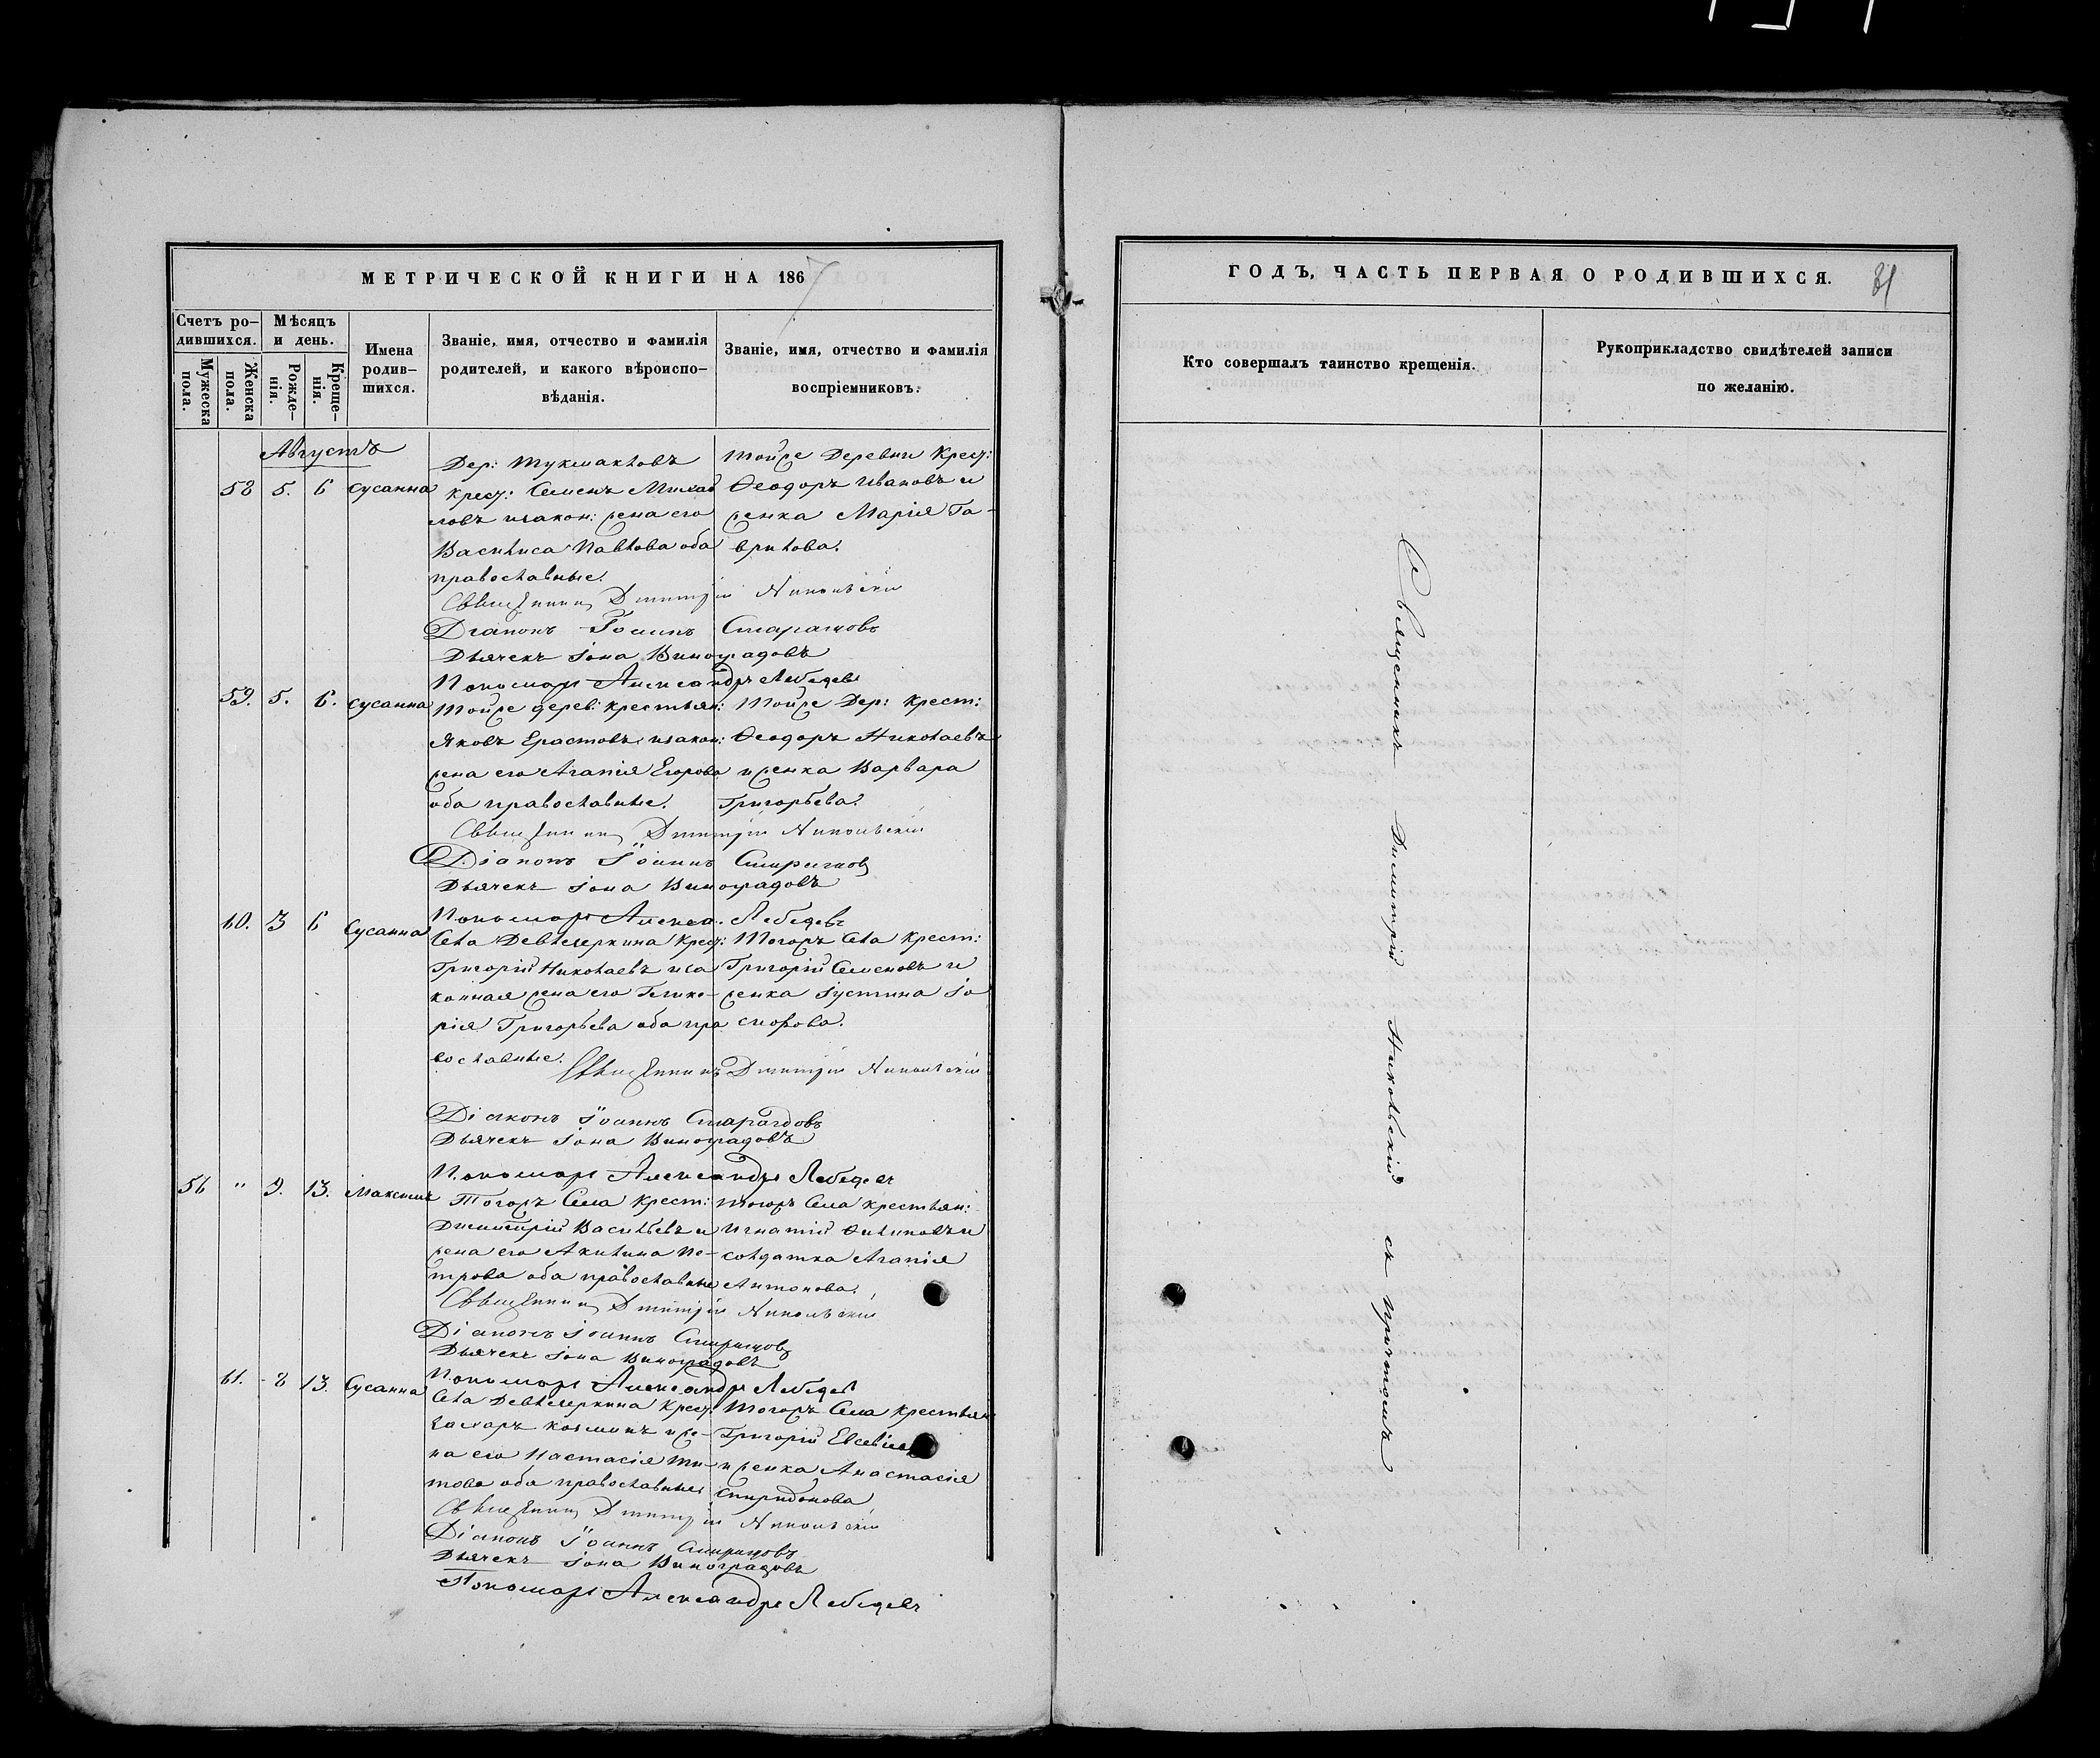 МЕТРИЧЕСКОЙ КНИГИ НА 1867
Счетъ ро-
дившихся.
Мужеска
пола.
Женска
пола.
Мѣсяцъ
и день.
Рожде-
нія.
Креще-
нія.
Имена
родив-
шихся.
Званіе, имя, отчество и фамилія
родителей, и какого вѣроиспо-
вѣданія.
Званіе, имя, отчество и фамилія
воспріемниковъ.
Августъ
58 5. 6 Сусанна
Дер: Тукмакловъ
крест: Семенъ Михай
ловъ изакон: жена его
Василиса Павлова оба
православные.
Тойже Деревни Крест:
Ѳеодоръ Ивановъ и
женка Марія Га-
врилова.
Священникъ Димитрій Никольскій
Діаконъ Іоаннъ Смарагдовъ
Дьячекъ Іона Виноградовъ
Пономарь Александръ Лебедевъ
59. 5. 6. Сусанна
Тойже дерев: крестьян:
Яковъ Ерастовъ изакон:
жена его Агапія Егорова
оба православные.
Тойже Дер: Крест:
Ѳеодоръ Николаевъ
и женка Варвара
Григорьева.
Священникъ Димитрій Никольскій
Діаконъ Іоаннъ Смарагдовъ
Дьячекъ Іона Виноградовъ
Пономарь Алекса. Лебедевъ
60. 3 6 Сусанна
Села Девлезеркина Крест:
Григорій Николаевъ иза
конная жена его Глике-
рія Григорьева оба пра
вославные.
Тогожъ Села Крест:
Григорій Семеновъ и
женка Іустина
Священникъ Димитрій Никольскій
Діаконъ Іоаннъ Смарагдовъ
Дьячекъ Іона Виноградовъ
Пономарь Александръ Лебедевъ
56 " 9. 13. Максимъ
Тогожъ Села Крест:
Димитрій Васильевъ и
жена его Акилина Пе-
трова оба православные
Тогожъ Села крестьян:
Игнатій Филиповъ и
солдатка Агапія
Антонова.
Священникъ Димитрій Никольскій
Діаконъ Іоаннъ Смарагдовъ
Дьячекъ Іона Виноградовъ
Пономарь Александръ Лебедевъ
61. 8 13. Сусанна
Села Девлезеркина Крест:
Козминъ и же-
на его Настасія Ти-
това оба православные
Тогожъ Села Крестьян
Григорій
и женка Анастасія
Спиридонова
Священникъ Димитрій Никольскій
Діаконъ Іоаннъ Смарагдовъ
Дьячекъ Іона Виноградовъ
Пономарь Александръ Лебедевъ
ГОДЪ, ЧАСТЬ ПЕРВАЯ О РОДИВШИХСЯ. 81
Кто совершалъ таинство крещенія.
Рукоприкладство свидѣтелей записи
по желанію.
Священникъ Димитрій Никольскій съ причтомъ